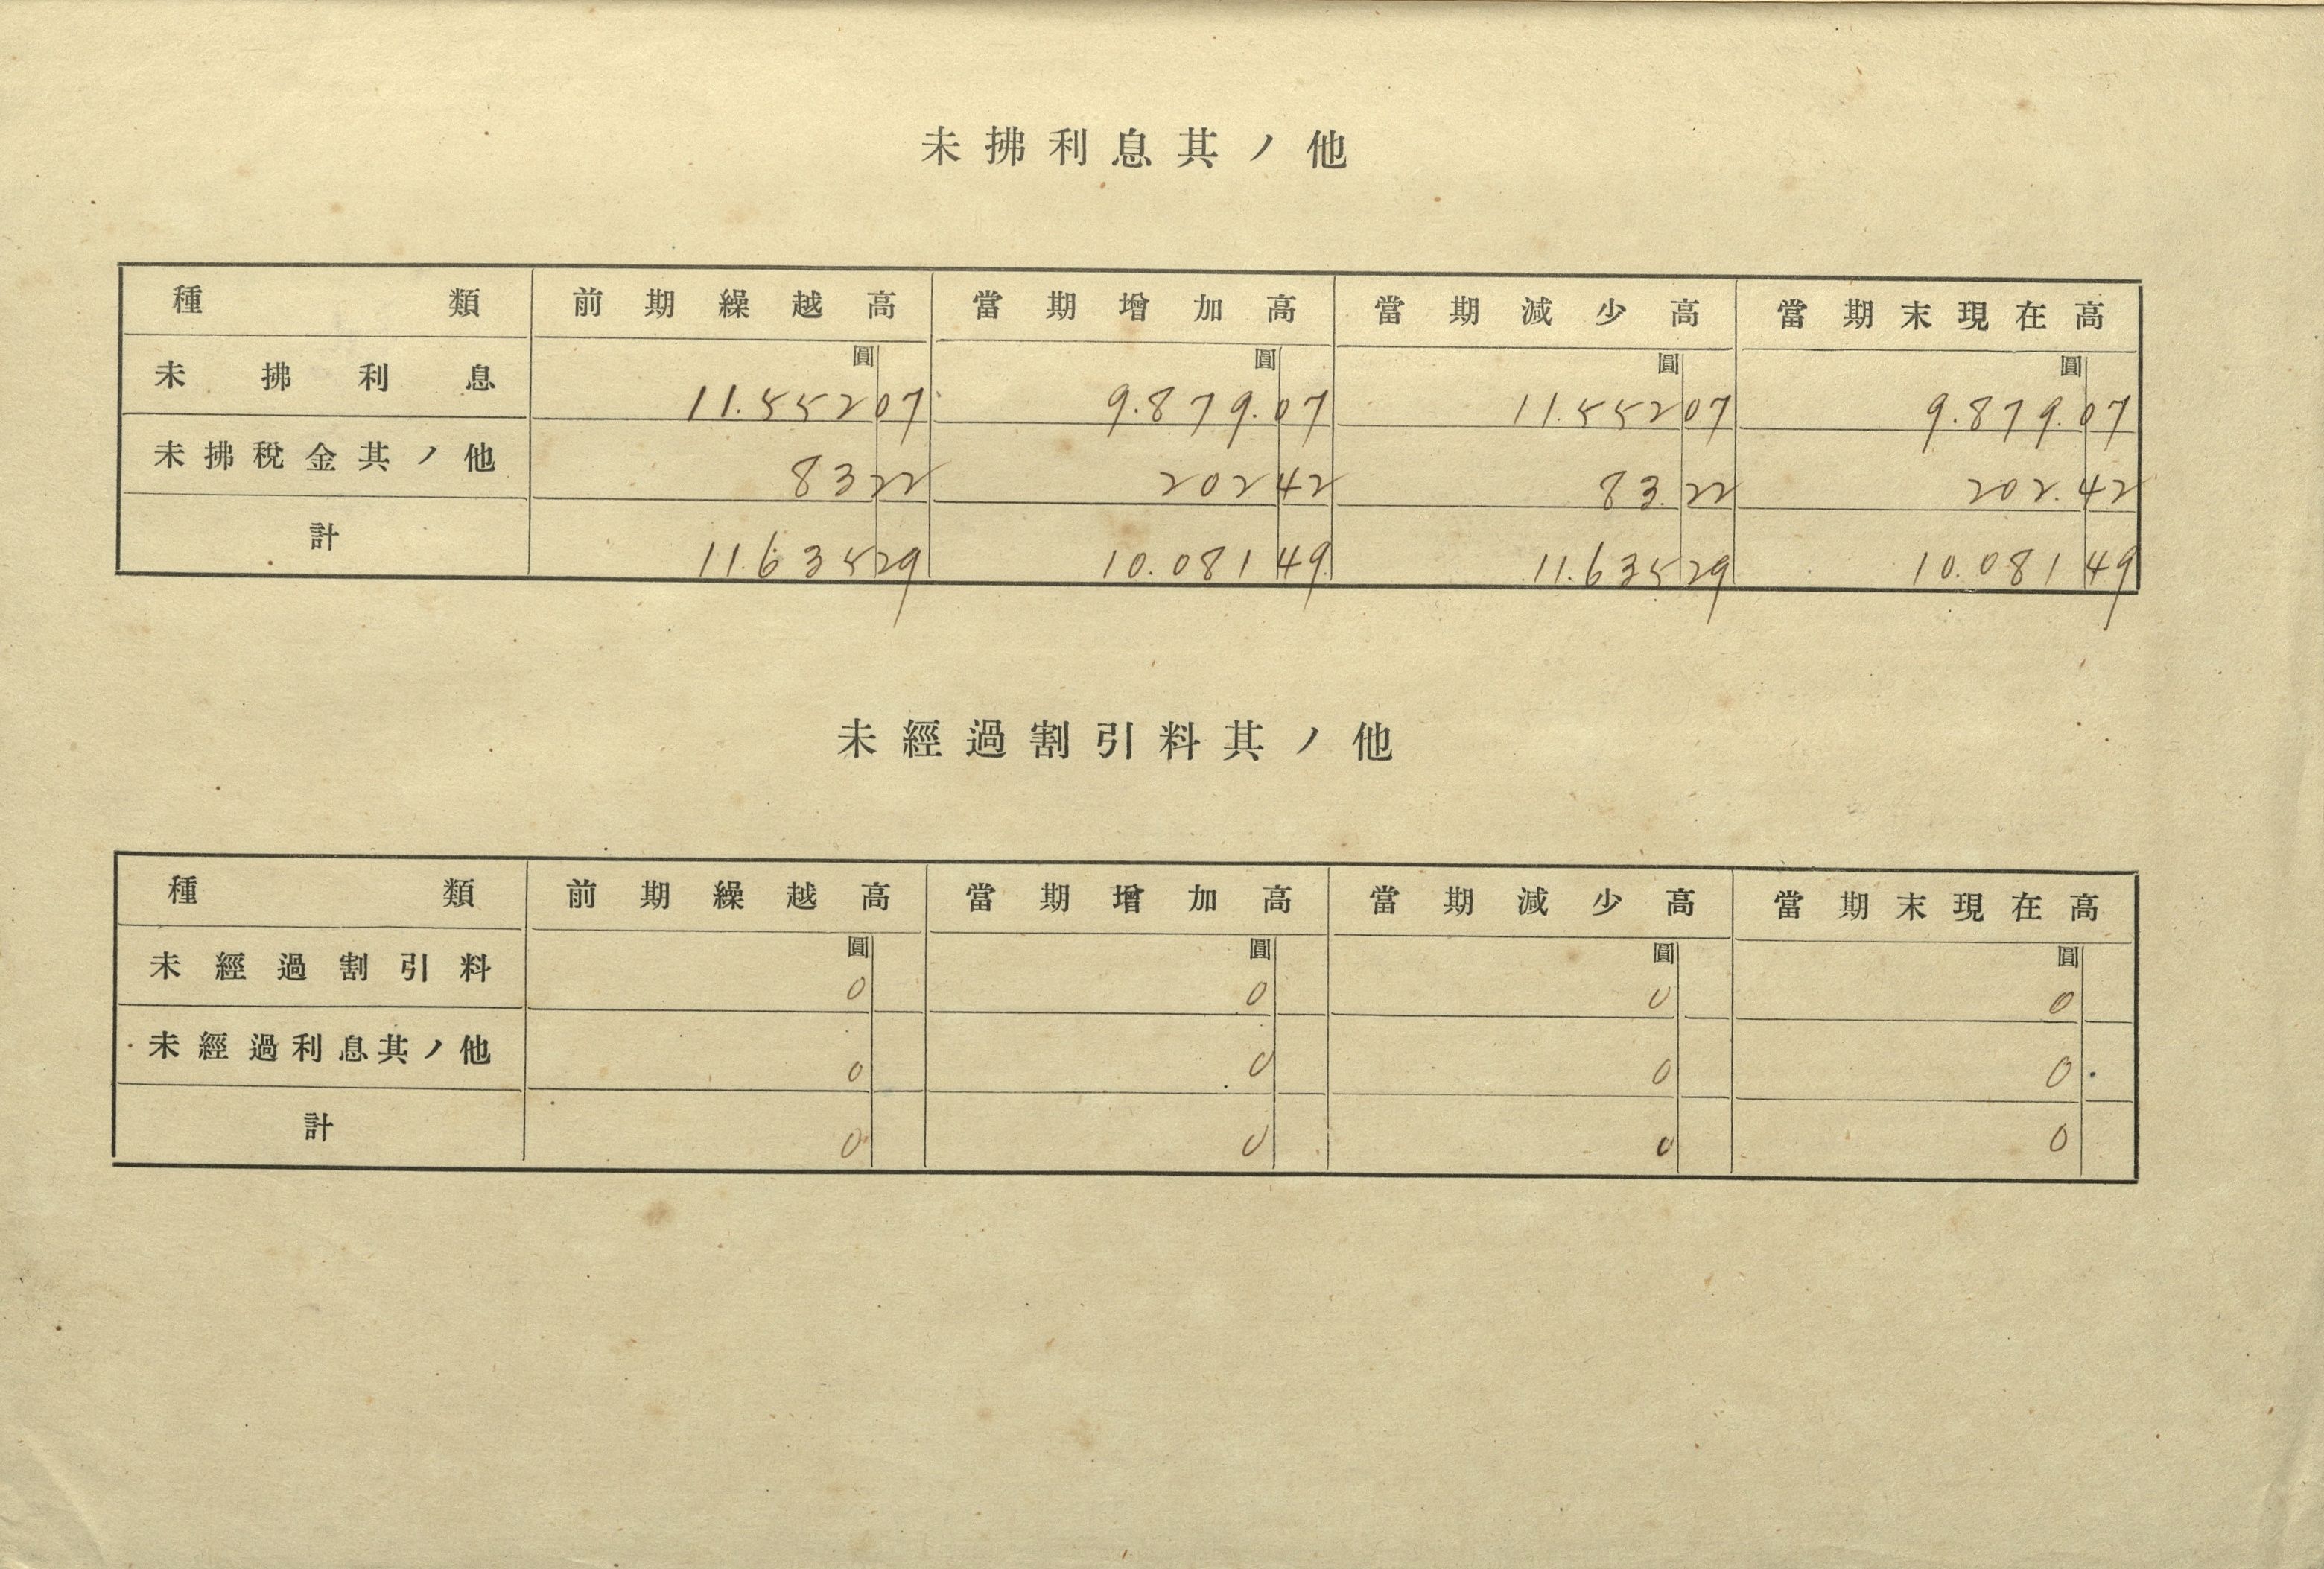 未拂利息其ノ他
種類 前期繰越高 當期增加高 當期減少高 當期末現在高
圓 圓 圓 圓
未拂利息 11.552 07 9.879. 07 11.552 07 9.879. 07
未拂稅金其ノ他 83 22 202 42 83. 22 202. 42
計 11.635 29 10.081 49 11.635 29 10.081 49
未經過割引料其ノ他
種類 前期繰越高 當期增加高 當期減少高 當期末現在高
圓 圓 圓 圓
未經過割引料 0 0 0 0
未經過利息其ノ他 0 0 0 0
計 0 0 0 0